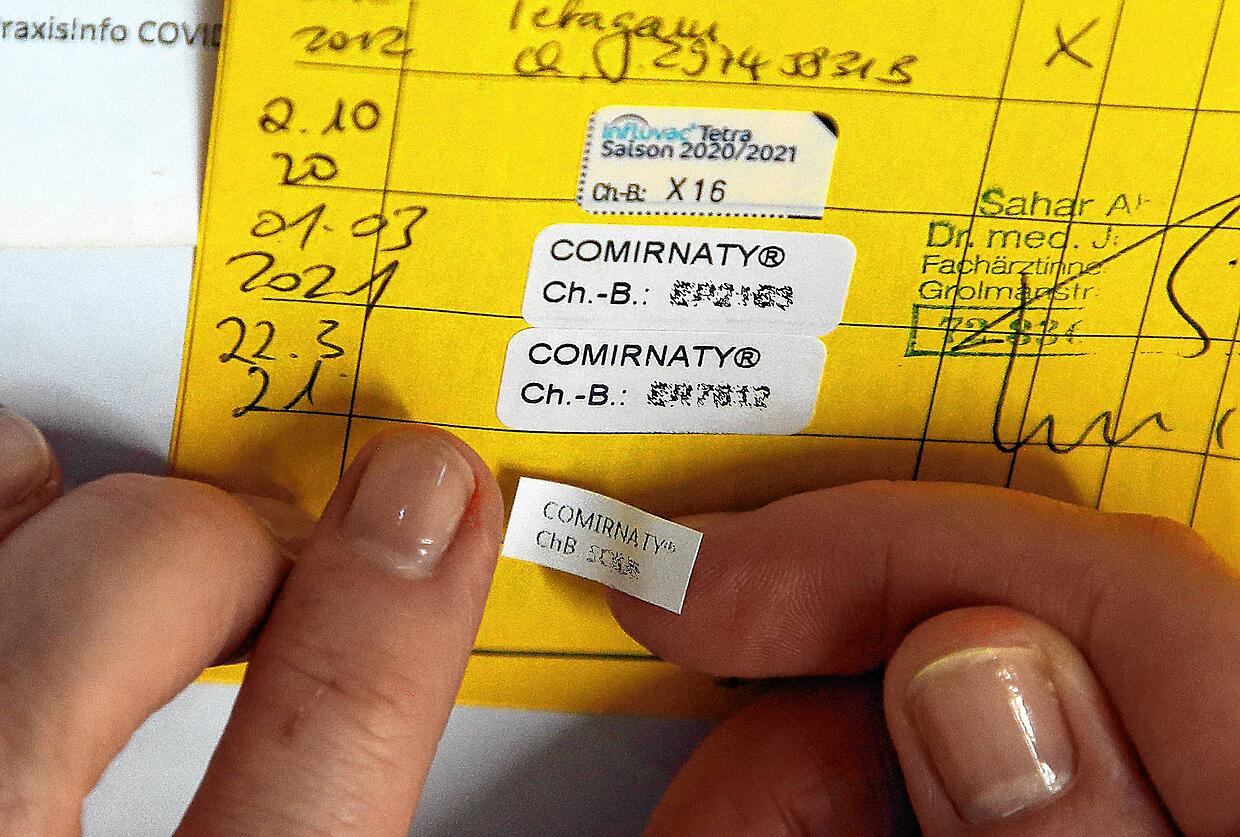 COVID
2012
Tetagam
Ch. 2974 5831B
X
2.10
20
influvac® Tetra
Saison 2020/2021
Ch-B: X16
01.03
2021
COMIRNATY®
Ch.-B.:
Sahar
Dr. med. J
Fachärztinne
Grolmanstr.
22.3
21
COMIRNATY®
Ch.-B.:
COMIRNATY®
ChB